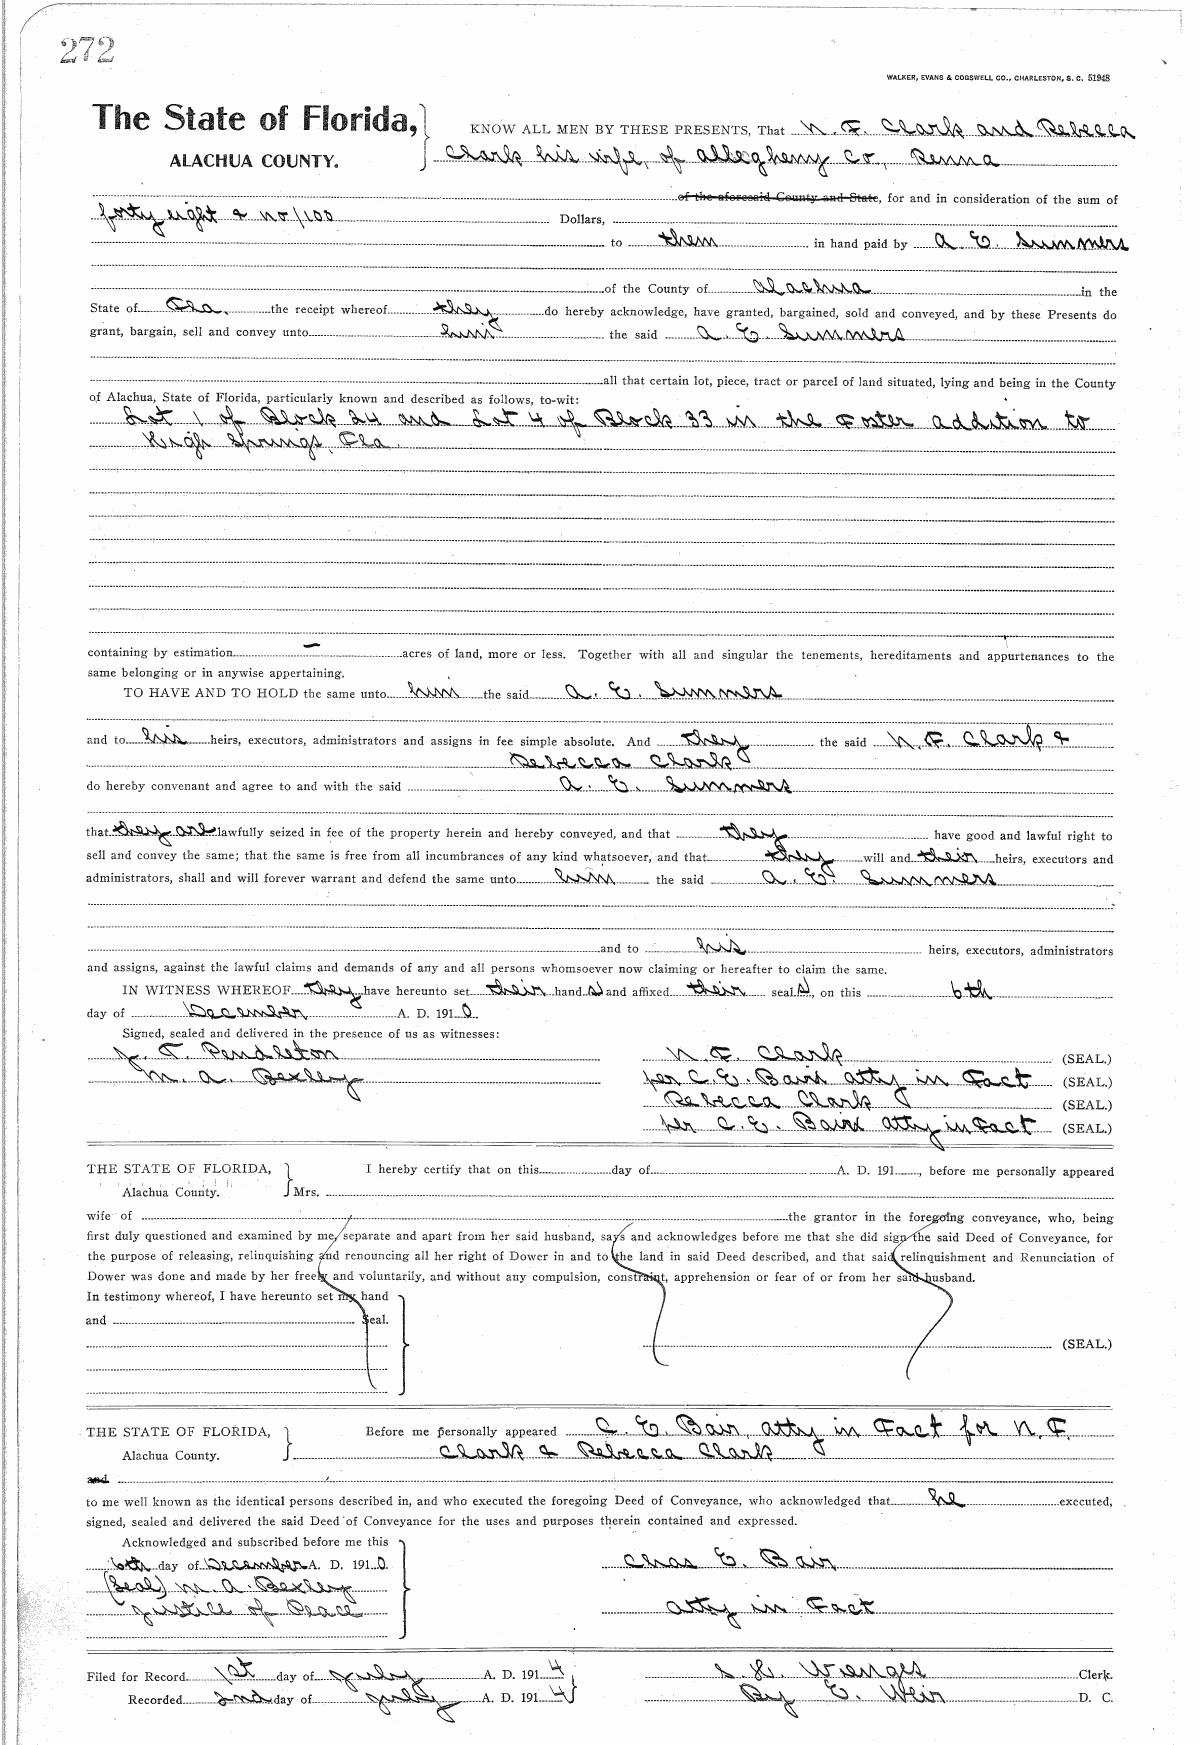 272
WALKER, EVANS & COGSWELL CO., CHARLESTON, S. C. 51948
The State of Florida,
ALACHUA COUNTY.
KNOW ALL MEN BY THESE PRESENTS, That N. F. Clark and Rebecca
Clark his wife, of Allegheny Co, Penna
of the aforesaid County and State, for and in consideration of the sum of
forty eight & no/100 Dollars,
to them in hand paid by A. E. Summers
of the County of Alachua in the
State of Fla. the receipt whereof they do hereby acknowledge, have granted, bargained, sold and conveyed, and by these Presents do
grant, bargain, sell and convey unto him the said A. E. Summers
all that certain lot, piece, tract or parcel of land situated, lying and being in the County
of Alachua, State of Florida, particularly known and described as follows, to-wit:
Lot 1 of Block 24 and Lot 4 of Block 33 in the Foster addition to
High Springs, Fla.
containing by estimation — acres of land, more or less. Together with all and singular the tenements, hereditaments and appurtenances to the
same belonging or in anywise appertaining.
TO HAVE AND TO HOLD the same unto him the said A. E. Summers
and to his heirs, executors, administrators and assigns in fee simple absolute. And they the said N. F. Clark &
Rebecca Clark
do hereby convenant and agree to and with the said A. E. Summers
that they are lawfully seized in fee of the property herein and hereby conveyed, and that they have good and lawful right to
sell and convey the same; that the same is free from all incumbrances of any kind whatsoever, and that they will and their heirs, executors and
administrators, shall and will forever warrant and defend the same unto him the said A. E. Summers
and to his heirs, executors, administrators
and assigns, against the lawful claims and demands of any and all persons whomsoever now claiming or hereafter to claim the same.
IN WITNESS WHEREOF they have hereunto set their hand s and affixed their seal s, on this 6th
day of December A. D. 1910.
Signed, sealed and delivered in the presence of us as witnesses:
J. T. Pendleton N. F. Clark (SEAL.)
M. A. Bexley per C. E. Bair atty in Fact (SEAL.)
Rebecca Clark (SEAL.)
per C. E. Bair atty in Fact (SEAL.)
THE STATE OF FLORIDA, I hereby certify that on this day of A. D. 191 , before me personally appeared
Alachua County. Mrs.
wife of the grantor in the foregoing conveyance, who, being
first duly questioned and examined by me, separate and apart from her said husband, says and acknowledges before me that she did sign the said Deed of Conveyance, for
the purpose of releasing, relinquishing and renouncing all her right of Dower in and to the land in said Deed described, and that said relinquishment and Renunciation of
Dower was done and made by her freely and voluntarily, and without any compulsion, constraint, apprehension or fear of or from her said husband.
In testimony whereof, I have hereunto set my hand
and Seal.
(SEAL.)
THE STATE OF FLORIDA, Before me personally appeared C. E. Bair, atty in Fact for N. F.
Alachua County. Clark & Rebecca Clark
and
to me well known as the identical persons described in, and who executed the foregoing Deed of Conveyance, who acknowledged that he executed,
signed, sealed and delivered the said Deed of Conveyance for the uses and purposes therein contained and expressed.
Acknowledged and subscribed before me this
6th day of December A. D. 1910. Chas E. Bair
(Seal) M. A. Bexley
Justice of Peace atty in Fact
Filed for Record 1st day of July A. D. 1914 S. H. Wienges Clerk.
Recorded 2nd day of July A. D. 1914 By E. Weir D. C.